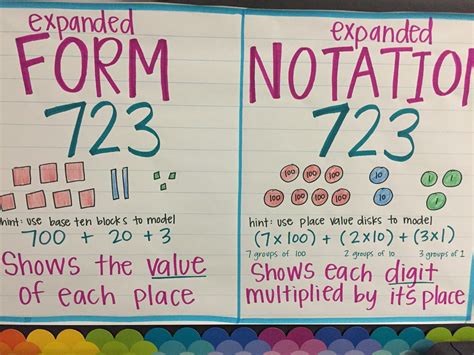 expanded
FORM
723
hint: use base ten blocks to model
700 + 20 + 3
Shows the value
of each place
expanded
NOTATION
723
100 100 100 10 1 1
100 100 100 100 10 1
hint: use place value disks to model
(7x100) + (2x10) + (3x1)
7 groups of 100 2 groups of 10 3 groups of 1
Shows each digit
multiplied by it's place